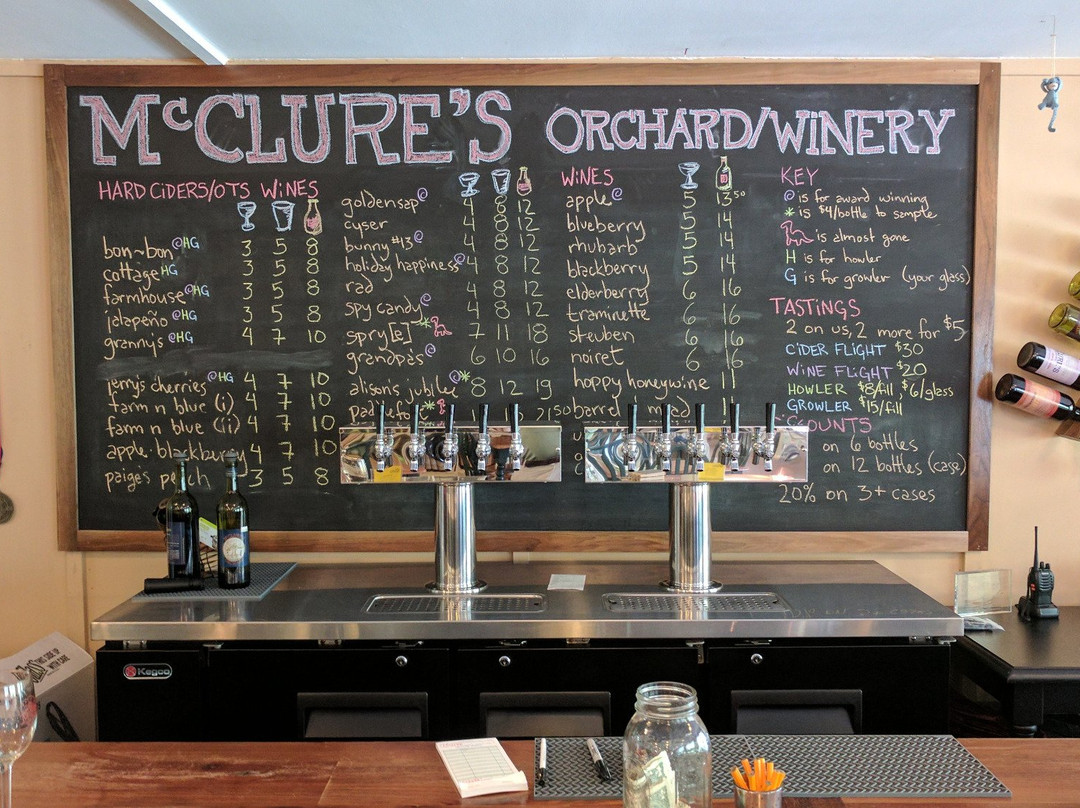 McCLURE'S ORCHARD/WINERY
HARD CIDERS/OTS WINES
bon~bon @HG 3 5 8
cottage HG 3 5 8
farmhouse @HG 3 5 8
jalapeño @HG 3 5 8
granny's @HG 4 7 10
jerry's cherries @HG 4 7 10
farm n blue (i) 4 7 10
farm n blue (ii) 4 7 10
apple·blackberry 4 7 10
paige's 3 5 8
goldensap @ 4 8 12
cyser 4 8 12
bunny #13 @ 4 8 12
holiday happiness @ 4 8 12
rad 4 8 12
spy candy @ 4 8 12
spry[e] * 7 11 18
grandpa's @ 6 10 16
alison's jubilee @* 8 12 19
WiNES
apple @ 5 13 50
blueberry 5 14
rhubarb 5 14
blackberry 5 14
elderberry 6 16
traminette 6 16
steuben 6 16
noiret 6 16
hoppy honeywine 11
barrel
KEY
@ is for award winning
* is $4/bottle to sample
is almost gone
H is for howler
G is for growler (your glass)
TASTINGS
2 on us, 2 more for $5
CiDER FLiGHT $30
WiNE FLiGHT $20
HOWLER $8/fill, $6/glass
GROWLER $15/fill
SCOUNTS
on 6 bottles
on 12 bottles (case)
20% on 3+ cases
Kegco